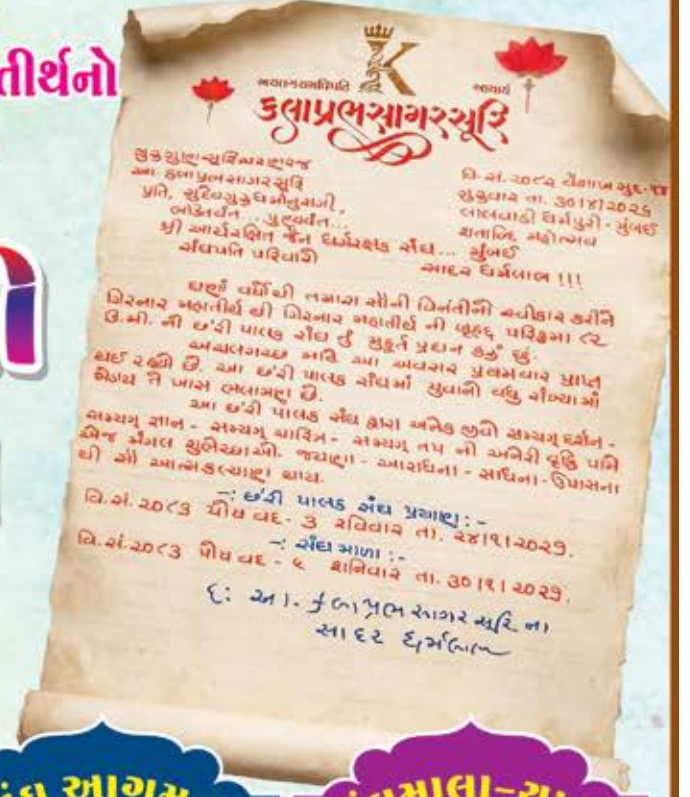 તીર્થનો
K
અચલગચ્છાધિપતિ આચાર્ય
કલાપ્રભસાગરસૂરિ
આ. કલાપ્રભસાગરસૂરિ
પ્રતિ, સુદેવગુરુધર્માનુરાગી,
ભક્તિવંત... પુણ્યવંત...
શ્રી આર્યરક્ષિત જૈન ધર્મરક્ષક સંઘ... મુંબઈ
સંઘપતિ પરિવારો
વિ.સં. ૨૦૮૨ વૈશાખ સુદ-૧૪
શુક્રવાર તા. ૩૦।૪।૨૦૨૬
લાલવાડી ધર્મપુરી - મુંબઈ
શતાબ્દિ મહોત્સવ
સાદર ધર્મલાભ !!!
ઘણાં વર્ષોથી તમારા સૌની વિનંતીનો સ્વીકાર કરીને
ગિરનાર મહાતીર્થ થી ગિરનાર મહાતીર્થ ની બૃહદ્ પરિક્રમા ૯૨
કી.મી. ની છ'રી પાલક સંઘ નું મુહૂર્ત પ્રદાન કરું છું.
અચલગચ્છ માટે આ અવસર પ્રથમવાર પ્રાપ્ત
થઈ રહ્યો છે. આ છ'રી પાલક સંઘમાં યુવાનો વધુ સંખ્યામાં
જોડાય તે ખાસ ભલામણ છે.
આ છ'રી પાલક સંઘ દ્વારા અનેક જીવો સમ્યગ્ દર્શન -
સમ્યગ્ જ્ઞાન - સમ્યગ્ ચારિત્ર - સમ્યગ્ તપ ની અનેરી વૃદ્ધિ પામે
એજ મંગલ શુભેચ્છાઓ. જયણા - આરાધના - સાધના - ઉપાસના
થી સૌ આત્મકલ્યાણ થાય.
-: છ'રી પાલક સંઘ પ્રયાણ :-
વિ.સં. ૨૦૮૩ પોષ વદ - ૩ રવિવાર તા. ૨૪।૧।૨૦૨૭.
-: સંઘ માળા :-
વિ.સં. ૨૦૮૩ પોષ વદ - ૮ શનિવાર તા. ૩૦।૧।૨૦૨૭.
દ: આ. કલાપ્રભ સાગર સૂરિ ના
સાદર ધર્મલાભ